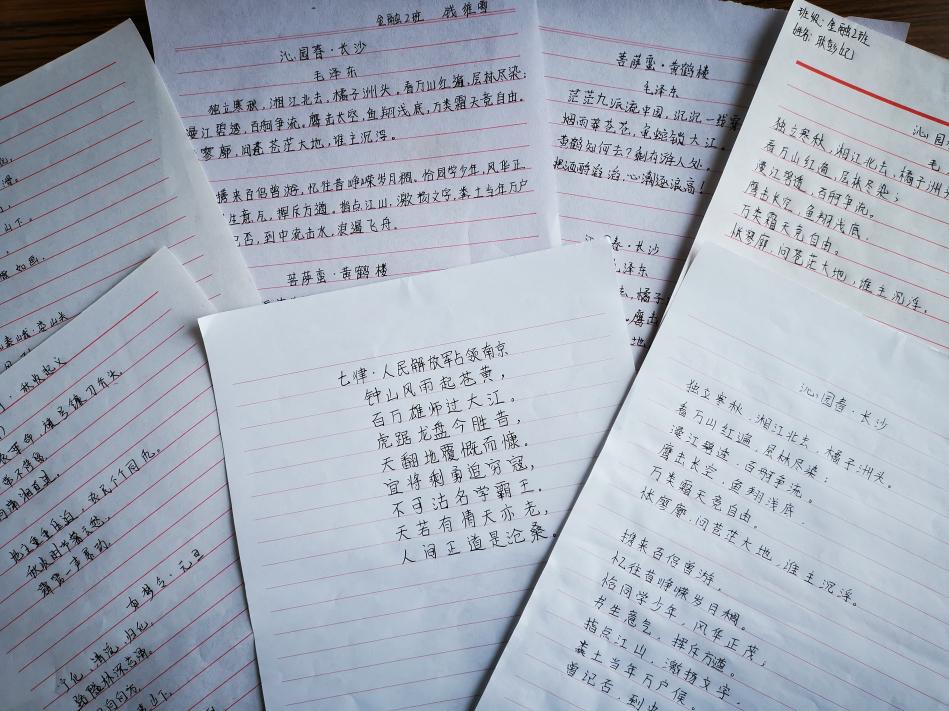 金融2班 钱雅雪
沁园春·长沙
毛泽东
独立寒秋，湘江北去，橘子洲头。看万山红遍，层林尽染；
漫江碧透，百舸争流。鹰击长空，鱼翔浅底，万类霜天竞自由。
寥廓，问苍茫大地，谁主沉浮。
携来百侣曾游，忆往昔峥嵘岁月稠。恰同学少年，风华正
生意气，挥斥方遒。指点江山，激扬文字，粪土当年万户
记否，到中流击水，浪遏飞舟。
菩萨蛮·黄鹤楼
菩萨蛮·黄鹤楼
毛泽东
茫茫九派流中国，沉沉一线穿
烟雨莽苍苍，龟蛇锁大江。
黄鹤知何去？剩有游人处。
把酒酹滔滔，心潮逐浪高！
春·长沙
毛泽东
橘子
鹰击
班级：金融2班
姓名：
沁园
毛
独立寒秋，湘江北去，橘子洲
看万山红遍，层林尽染；
漫江碧透，百舸争流。
鹰击长空，鱼翔浅底，
万类霜天竞自由。
怅寥廓，问苍茫大地，谁主沉浮。
山下。
如思。
秋收起义
军叫工农革命，旗号镰刀斧头。
地主重重压迫，农民个个同仇。
秋收时节暮云愁，
霹雳一声暴动。
如梦令·元旦
宁化、清流、归化，
路隘林深苔滑。
七律·人民解放军占领南京
钟山风雨起苍黄，
百万雄师过大江。
虎踞龙盘今胜昔，
天翻地覆慨而慷。
宜将剩勇追穷寇，
不可沽名学霸王。
天若有情天亦老，
人间正道是沧桑。
沁园春·长沙
独立寒秋，湘江北去，橘子洲头。
看万山红遍，层林尽染；
漫江碧透，百舸争流。
鹰击长空，鱼翔浅底，
万类霜天竞自由。
怅寥廓，问苍茫大地，谁主沉浮。
携来百侣曾游，
忆往昔峥嵘岁月稠。
恰同学少年，风华正茂；
书生意气，挥斥方遒。
指点江山，激扬文字，
粪土当年万户侯。
曾记否，到中